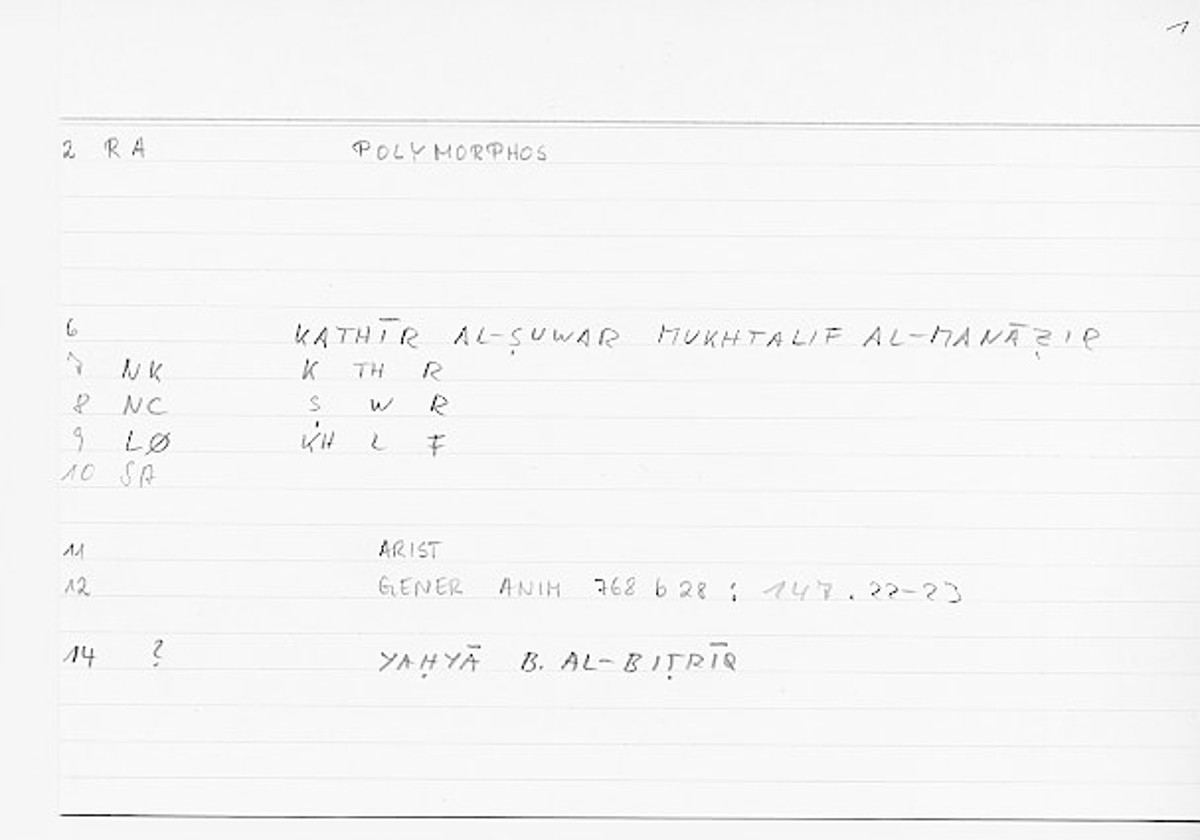 1
2 RA POLYMORPHOS
6 KATHĪR AL-ṢUWAR MUKHTALIF AL-MANĀẒIR
7 NK K TH R
8 NC Ṣ W R
9 LØ KH L F
10 SA
11 ARIST
12 GENER ANIM 768 b 28 : 147.22-23
14 ? YAḤYĀ B. AL-BIṬRĪQ